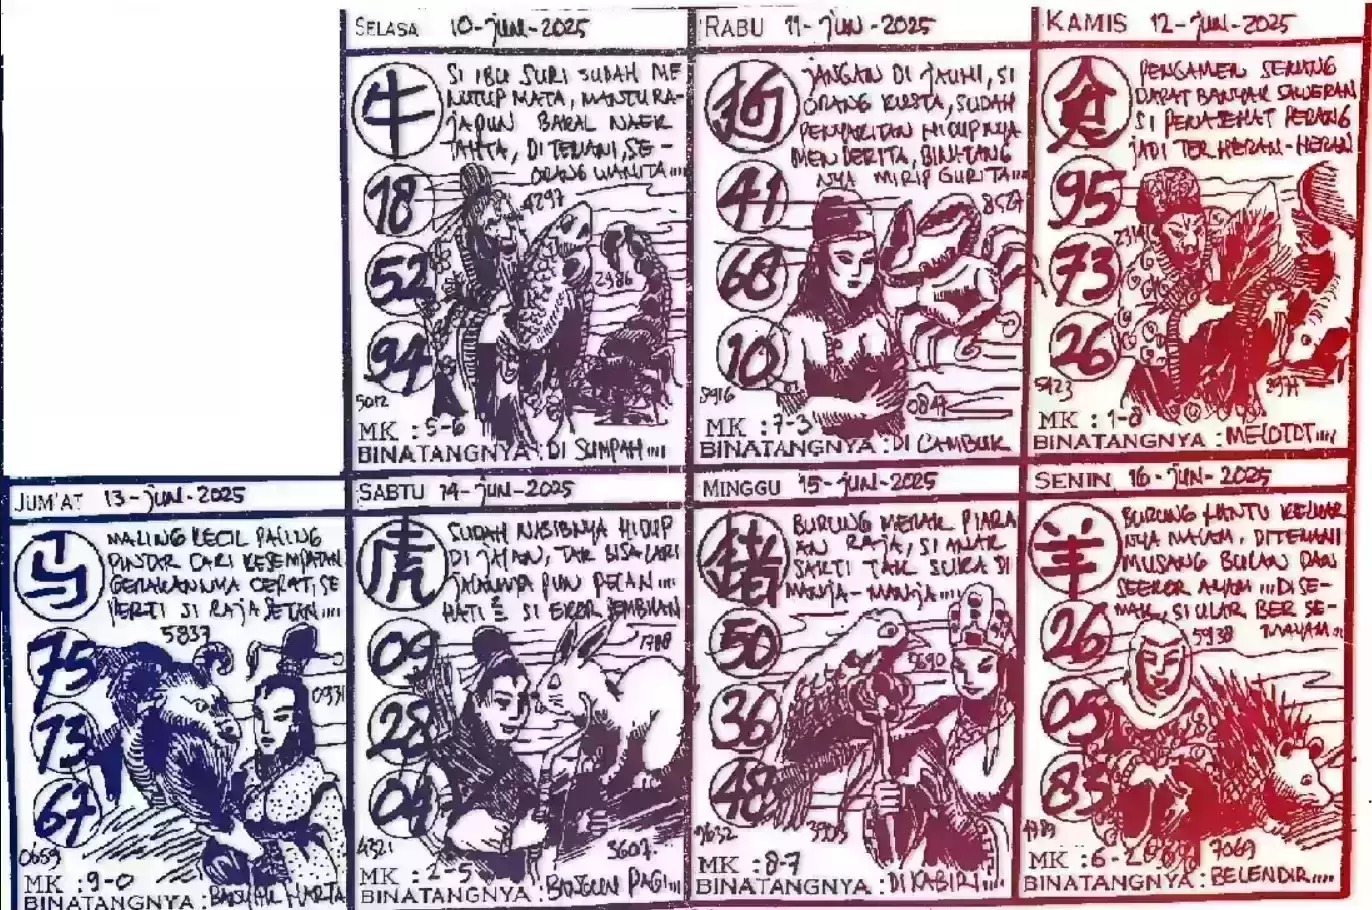 SELASA 10-JUNI-2025
牛
SI IBU SURI SUDAH ME
NUTUP MATA, MANTU RA-
JAPUN BAKAL NAEK
TAHTA, DITEMANI, SE-
ORANG WANITA....
18
4297
52
2986
94
5012
MK : 5-6
BINATANGNYA : DI SUMPAH....
RABU 11-JUNI-2025
狗
JANGAN DI JAUHI, SI
ORANG KUSTA, SUDAH
PENYAKITAN HIDUPNYA
MENDERITA, BINATANG
NYA MIRIP GURITA....
41
8527
68
10
3916
0847
MK : 7-3
BINATANGNYA : DI CAMBUK
KAMIS 12-JUNI-2025
PENGAMEN SENANG
DAPAT BANYAK SAWERAN
SI PENASEHAT PERANG
JADI TERHERAN-HERAN
95
73
26
5423
MK : 1-8
BINATANGNYA : MELOTOT....
JUM'AT 13-JUNI-2025
马
MALING KECIL PALING
PINTAR CARI KESEMPATAN
GERAKANNYA CEPAT, SE
PERTI SI RAJA SETAN....
5837
75
0931
73
67
0659
MK : 9-0
BINATANGNYA : BANYAK HARTA
SABTU 14-JUNI-2025
虎
SUDAH NASIBNYA HIDUP
DI JALAN, TAK BISA LARI
JALANNYA PUN PELAN....
HATI 2 SI EKOR SEMBILAN
09
1788
28
04
4321
3607
MK : 2-5
BINATANGNYA : BANGUN PAGI....
MINGGU 15-JUNI-2025
猪
BURUNG MERAK PIARA
AN RAJA, SI ANAK
SAKTI TAK SUKA DI
MANJA-MANJA....
50
5690
36
48
9632
3909
MK : 8-7
BINATANGNYA : DIKABIRI....
SENIN 16-JUNI-2025
羊
BURUNG HANTU KELUAR
NYA MALAM, DITEMANI
MUSANG BULAN DAN
SEEKOR AYAM ...DISE-
MAK, SI ULAR BERSE-
MAYAM..
26
5938
05
83
4189
7069
MK : 6-2
BINATANGNYA : BELENDIR....